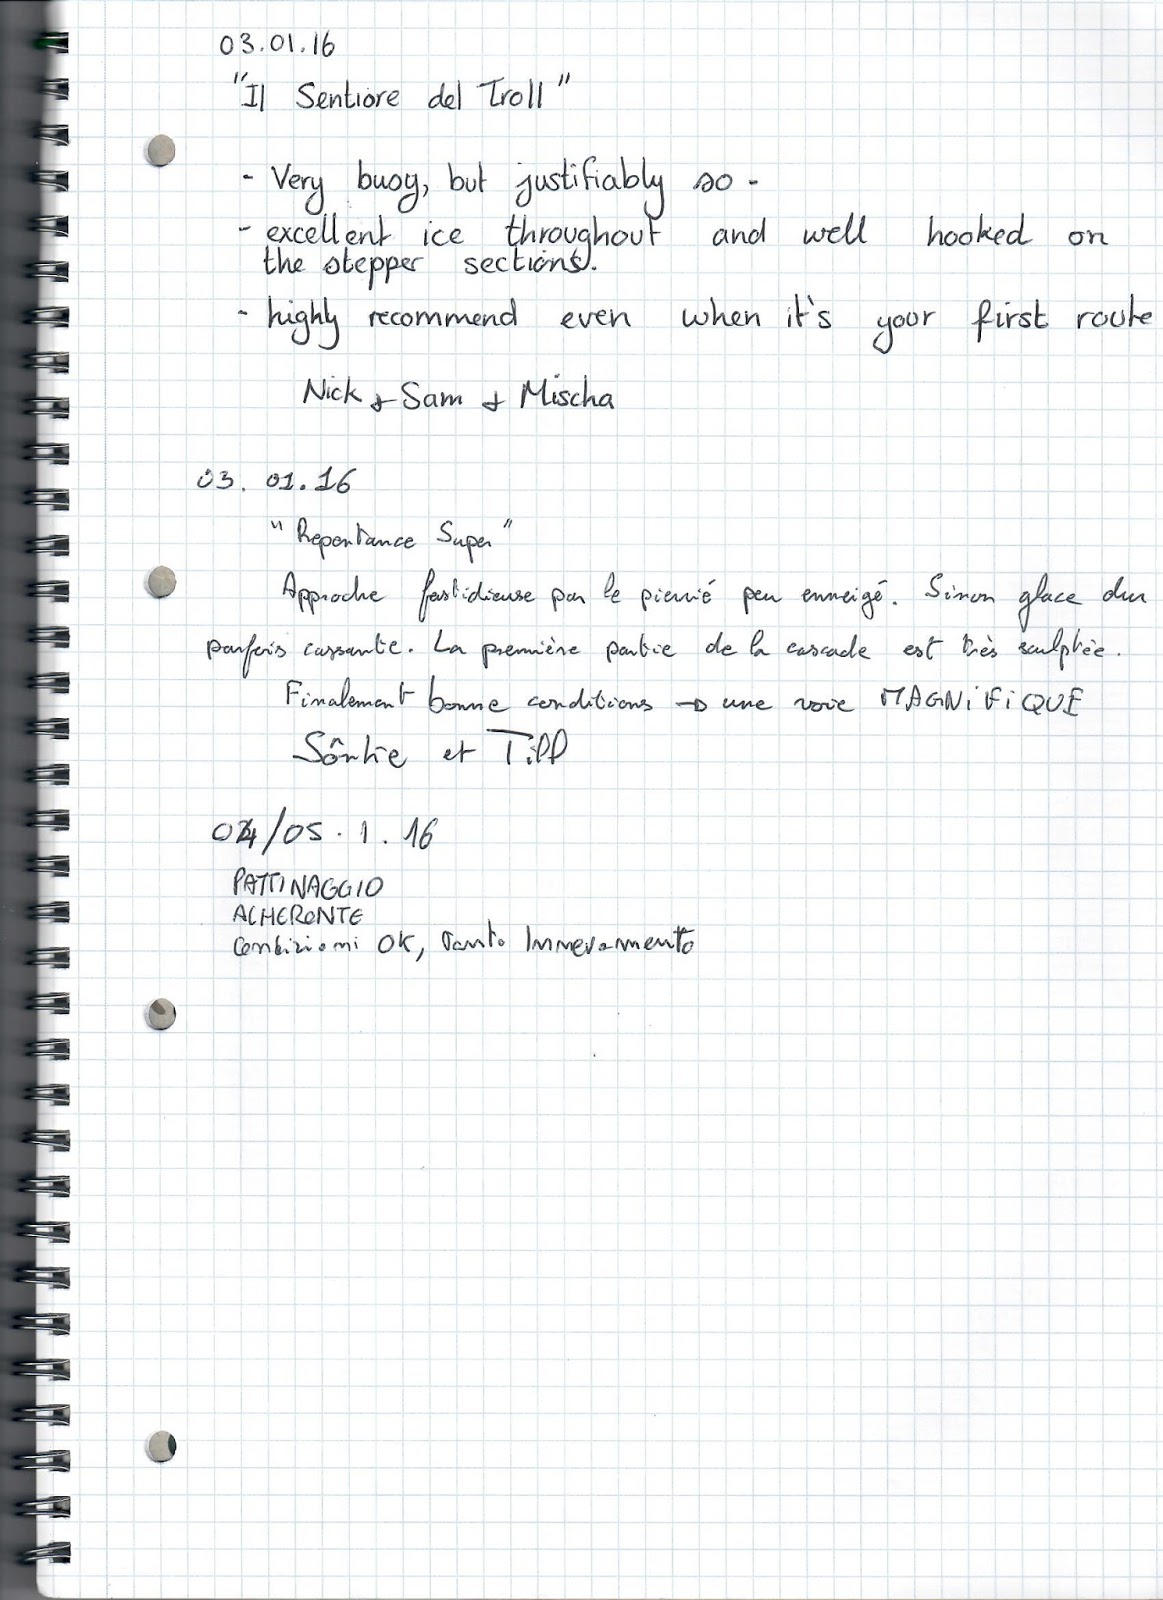 03.01.16
"Il Sentiore del Troll"
- Very busy, but justifiably so -
- excellent ice throughout and well hooked on
the stepper sections.
- highly recommend even when it's your first route
Nick + Sam + Mischa
03. 01.16
"Repentance Super"
Approche fastidieuse par le pierrié peu enneigé. Sinon glace dur
parfois cassante. La première partie de la cascade est très sculptée.
Finalement bonne conditions → une voie MAGNiFiQUE
et Tiff
04/05.1.16
PATTINAGGIO
ACHERONTE
Condizioni OK, tanto Innevamento